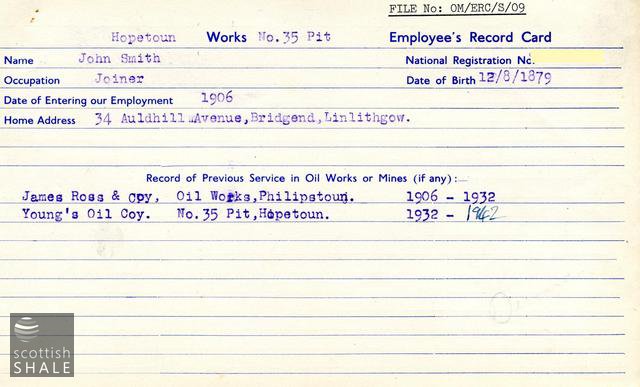 FILE No: OM/ERC/S/09
Hopetoun Works No.35 Pit Employee's Record Card
Name John Smith National Registration No.
Occupation Joiner Date of Birth 12/8/1879
Date of Entering our Employment 1906
Home Address 34 Auldhill Avenue,Bridgend,Linlithgow.
Record of Previous Service in Oil Works or Mines (if any):
James Ross & Coy, Oil Works,Philpstoun. 1906 - 1932
Young's Oil Coy. No.35 Pit,Hopetoun. 1932 - 1942
scottish
SHALE